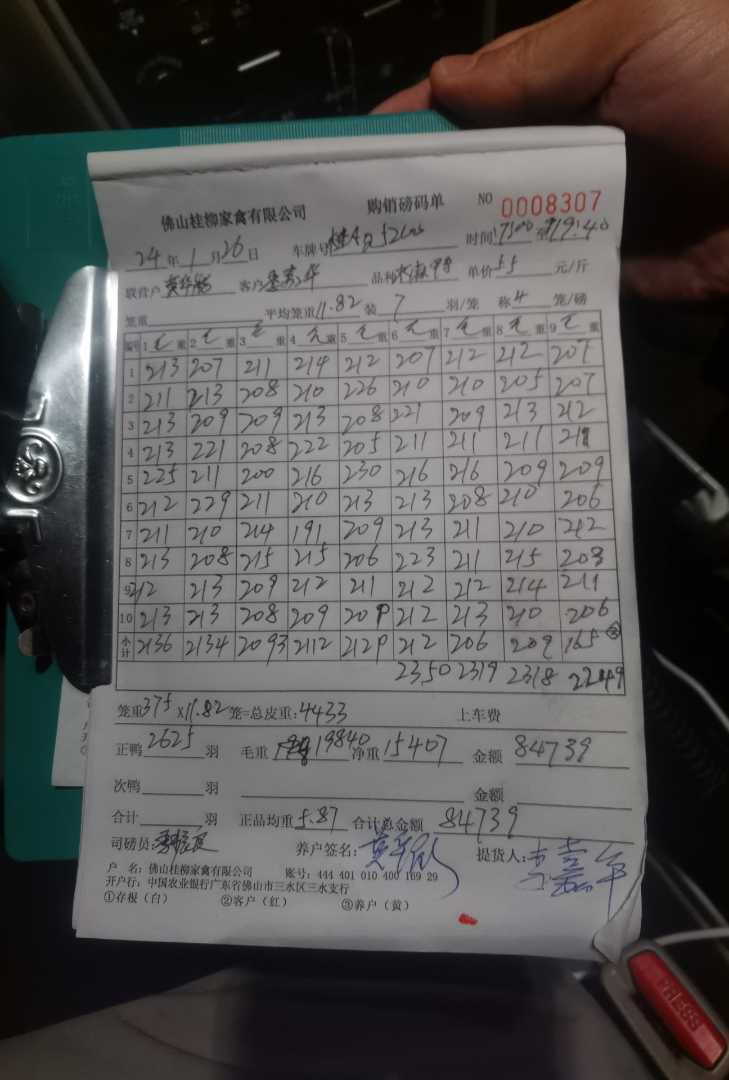 佛山桂柳家禽有限公司 购销磅码单 NO 0008307
24年1月26日 车牌号 时间 19:40
联营户 客户 品种 单价5.5元/斤
笼重 平均笼重11.82 装7羽/笼 称4笼/磅
编号 1毛重 2毛重 3毛重 4毛重 5毛重 6毛重 7毛重 8毛重 9毛重
1 213 207 211 214 212 207 212 212 207
2 211 213 208 210 226 210 210 205 207
3 213 209 209 213 208 221 209 213 212
4 213 221 208 222 205 211 211 211 211
5 225 211 200 216 230 216 216 209 209
6 212 229 211 210 213 213 208 210 206
7 211 210 214 191 209 213 211 210 212
8 213 208 215 215 206 223 211 215 203
9 212 213 209 212 211 212 212 214 211
10 213 213 208 209 209 212 213 210 206
小计 2136 2134 2093 2112 2129 212 206 209 165 ③
2350 2319 2318 2249
笼重375×11.82笼=总皮重:4433 上车费
正鸭2625羽 毛重19840净重15407 金额84739
次鸭 羽 金额
合计 羽 正品均重5.87 合计总金额84739
司磅员: 养户签名: 提货人:
户名:佛山桂柳家禽有限公司 账号:444 401 010 400 169 29
开户行:中国农业银行广东省佛山市三水区三水支行
①存根(白) ②客户(红) ③养户(黄)
PRESS